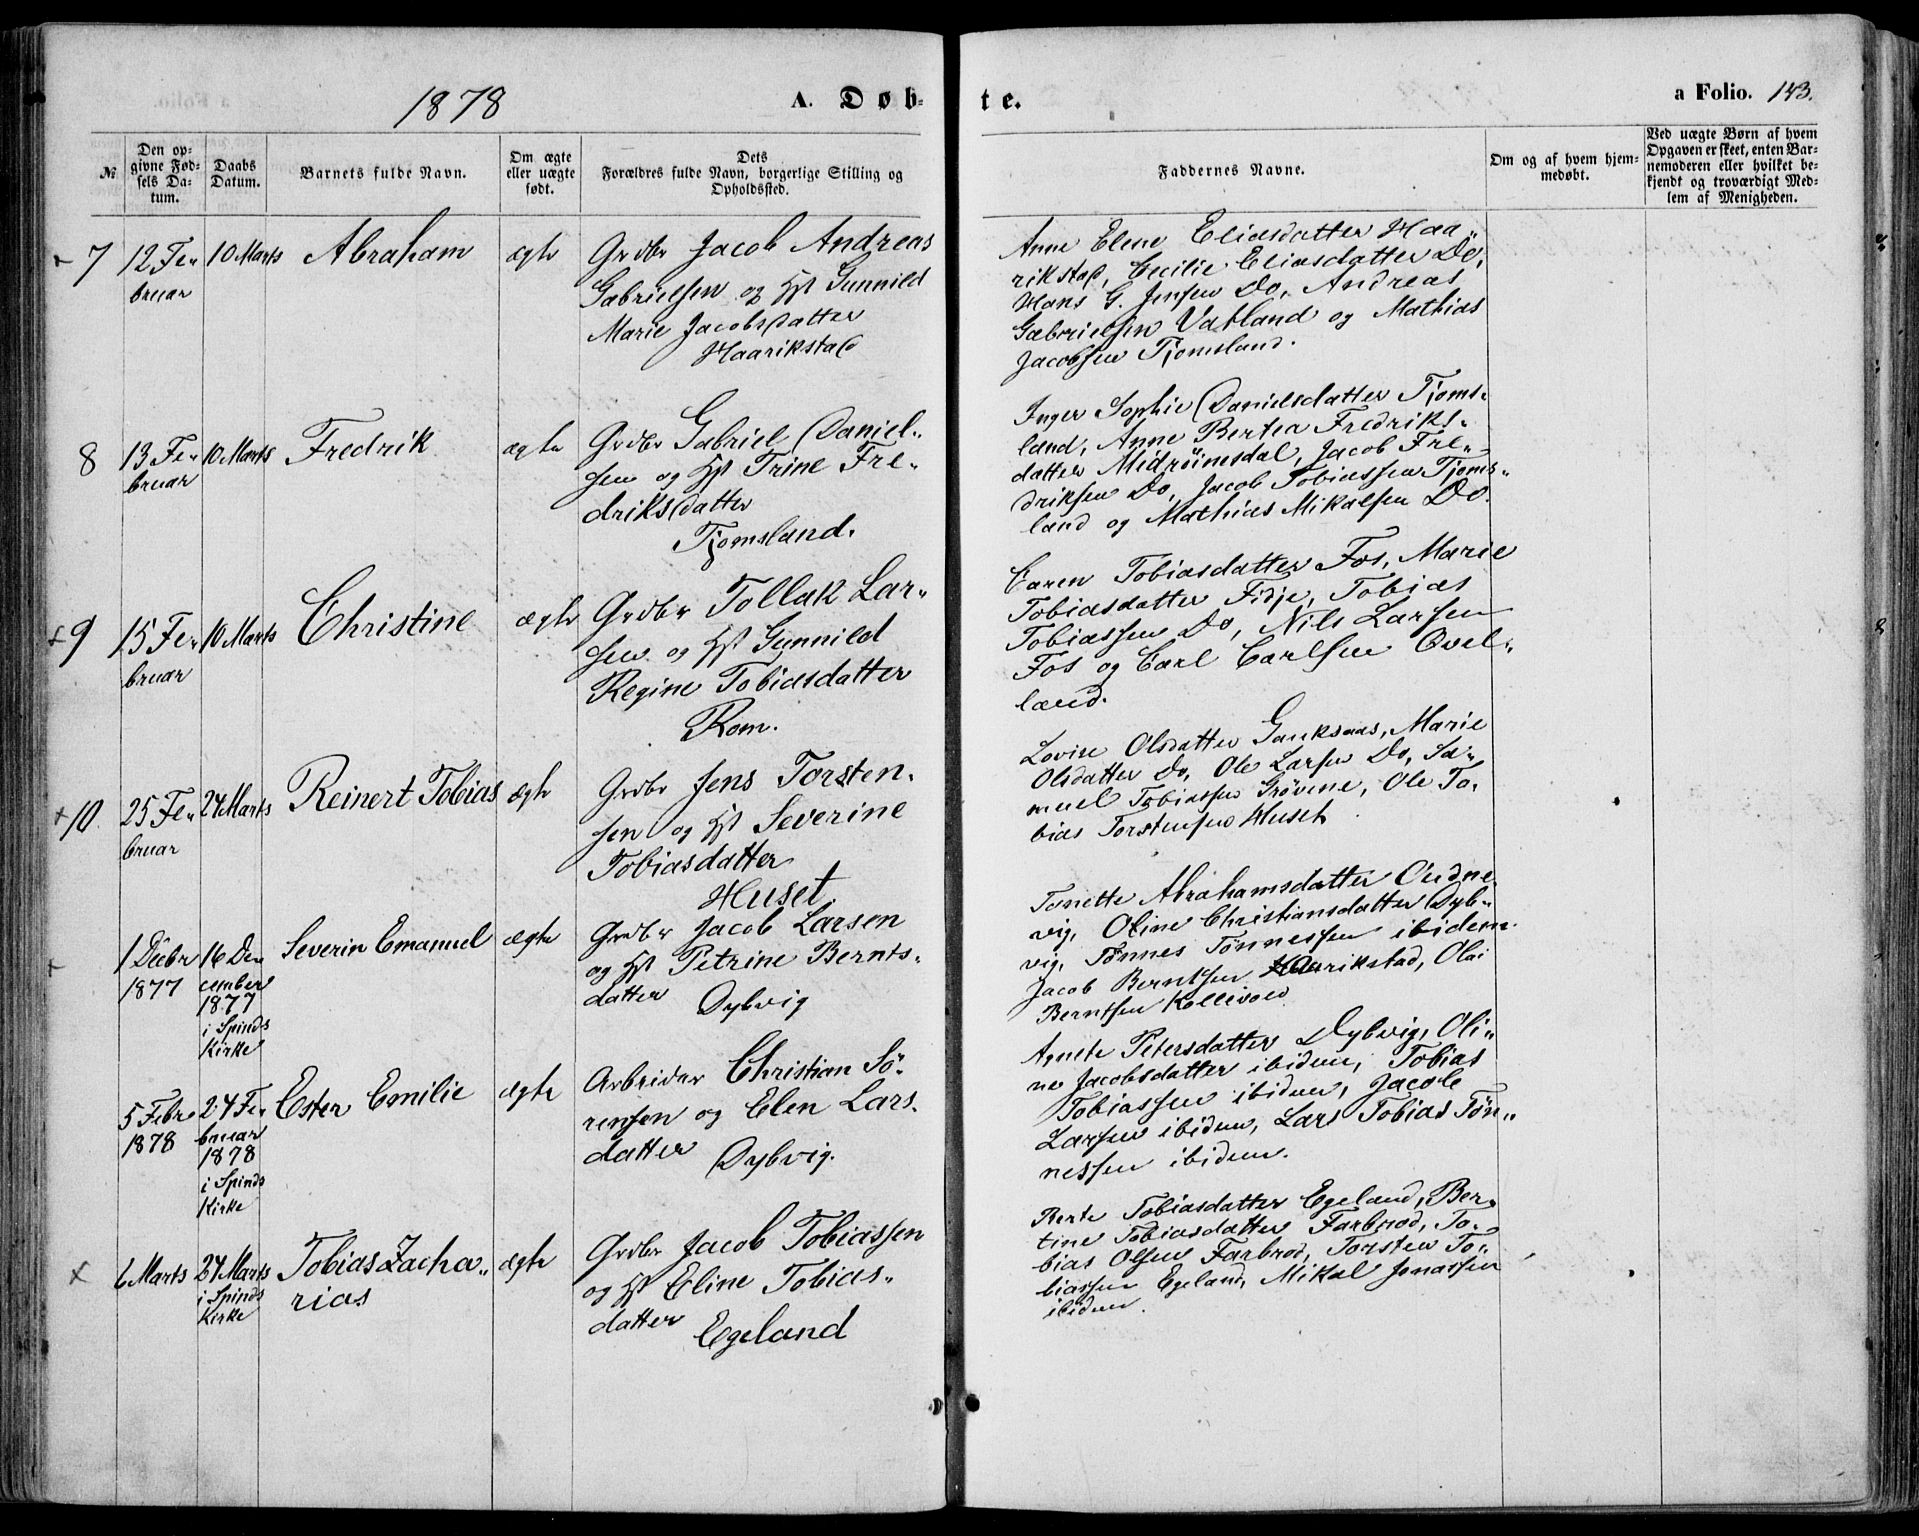 1878
A. Døb-
te.
a Folio. 143.
№
Den op-
givne Fød-
sels Da-
tum.
Daabs
Datum.
Barnets fulde Navn.
Om ægte
eller uægte
født.
Dets
Forældres fulde Navn, borgerlige Stilling og
Opholdssted.
Faddernes Navne.
Om og af hvem hjem-
medøbt.
Ved uægte Børn af hvem
Opgaven er skeet, enten Bar-
nemoderen eller hvilket be-
kjendt og troværdigt Med-
lem af Menigheden.
7
12 Fe-
bruar
10 Marts
Abraham
ægte
Grdbr Jacob Andreas
Gabrielsen og Hst Gunnild
Marie Jacobsdatter
Haarikstad
Anne Elene Eliasdatter Haa-
rikstad, Cecilie Eliasdatter Do,
Hans G. Jensen Do, Andreas
Gabrielsen Vatland og Mathias
Jacobsen Tjomsland.
8
13 Fe-
bruar
10 Marts
Fredrik
ægte
Grdbr Gabriel Daniel-
sen og Hst Trine Fre-
driksdatter
Tjomsland.
Inger Sophie Danielsdatter Tjoms-
land, Anne Bertea Fredriks-
datter Midröimsdal, Jacob Fre-
driksen Do, Jacob Tobiassen Tjoms-
land og Mathias Mikalsen Do.
+ 9
15 Fe-
bruar
10 Marts
Christine
ægte
Grdbr Tollak Lar-
sen og Hst Gunnild
Regine Tobiasdatter
Rom.
Caren Tobiasdatter Fos, Marie
Tobiasdatter Fidje, Tobias
Tobiassen Do, Nils Larsen
Fos og Carl Carlsen Qvel-
land.
+ 10.
25 Fe-
bruar
24 Marts
Reinert Tobias
ægte
Grdbr Jens Torsten-
sen og Hst Severine
Tobiasdatter
Huset.
Lovise Olsdatter Ganksaas, Marie
Olsdatter Do, Ole Larsen Do, Sa-
muel Tobiassen Grövene, Ole To-
bias Torstensen Huset
+
1 Decbr
1877
16 De-
cember
1877
i Spinds
Kirke
Severin Emanuel
ægte
Grdbr Jacob Larsen
og Hst Petrine Bernts-
datter
Dybvig
Tonette Abrahamsdatter Oudne
vig, Oline Christiansdatter Dyb-
vig, Tønnes Tønnessen ibidem.
Jacob Berntsen Haarikstad, Olai
Berntsen Kollevold
5 Febr
1878
24 Fe-
bruar
1878
i Spinds
Kirke
Ester Emilie
ægte
Arbeider Christian Sö-
rensen og Elen Lars-
datter
Dybvig.
Agnete Petersdatter Dybvig, Oli-
ne Jacobsdatter ibidem, Tobias
Tobiassen ibidem, Jacob
Larsen ibidem, Lars Tobias Tøn-
nessen ibidem.
x
6 Marts
24 Marts
i Spinds
Kirke
Tobias Zacha-
rias
ægte
Grdbr Jacob Tobiassen
og Hst Eline Tobias-
datter
Egeland
Berte Tobiasdatter Egeland, Ber-
tine Tobiasdatter Farbrod, To-
bias Olsen Farbrod, Torsten To-
biassen Egeland, Mikal Jonassen
ibidem.